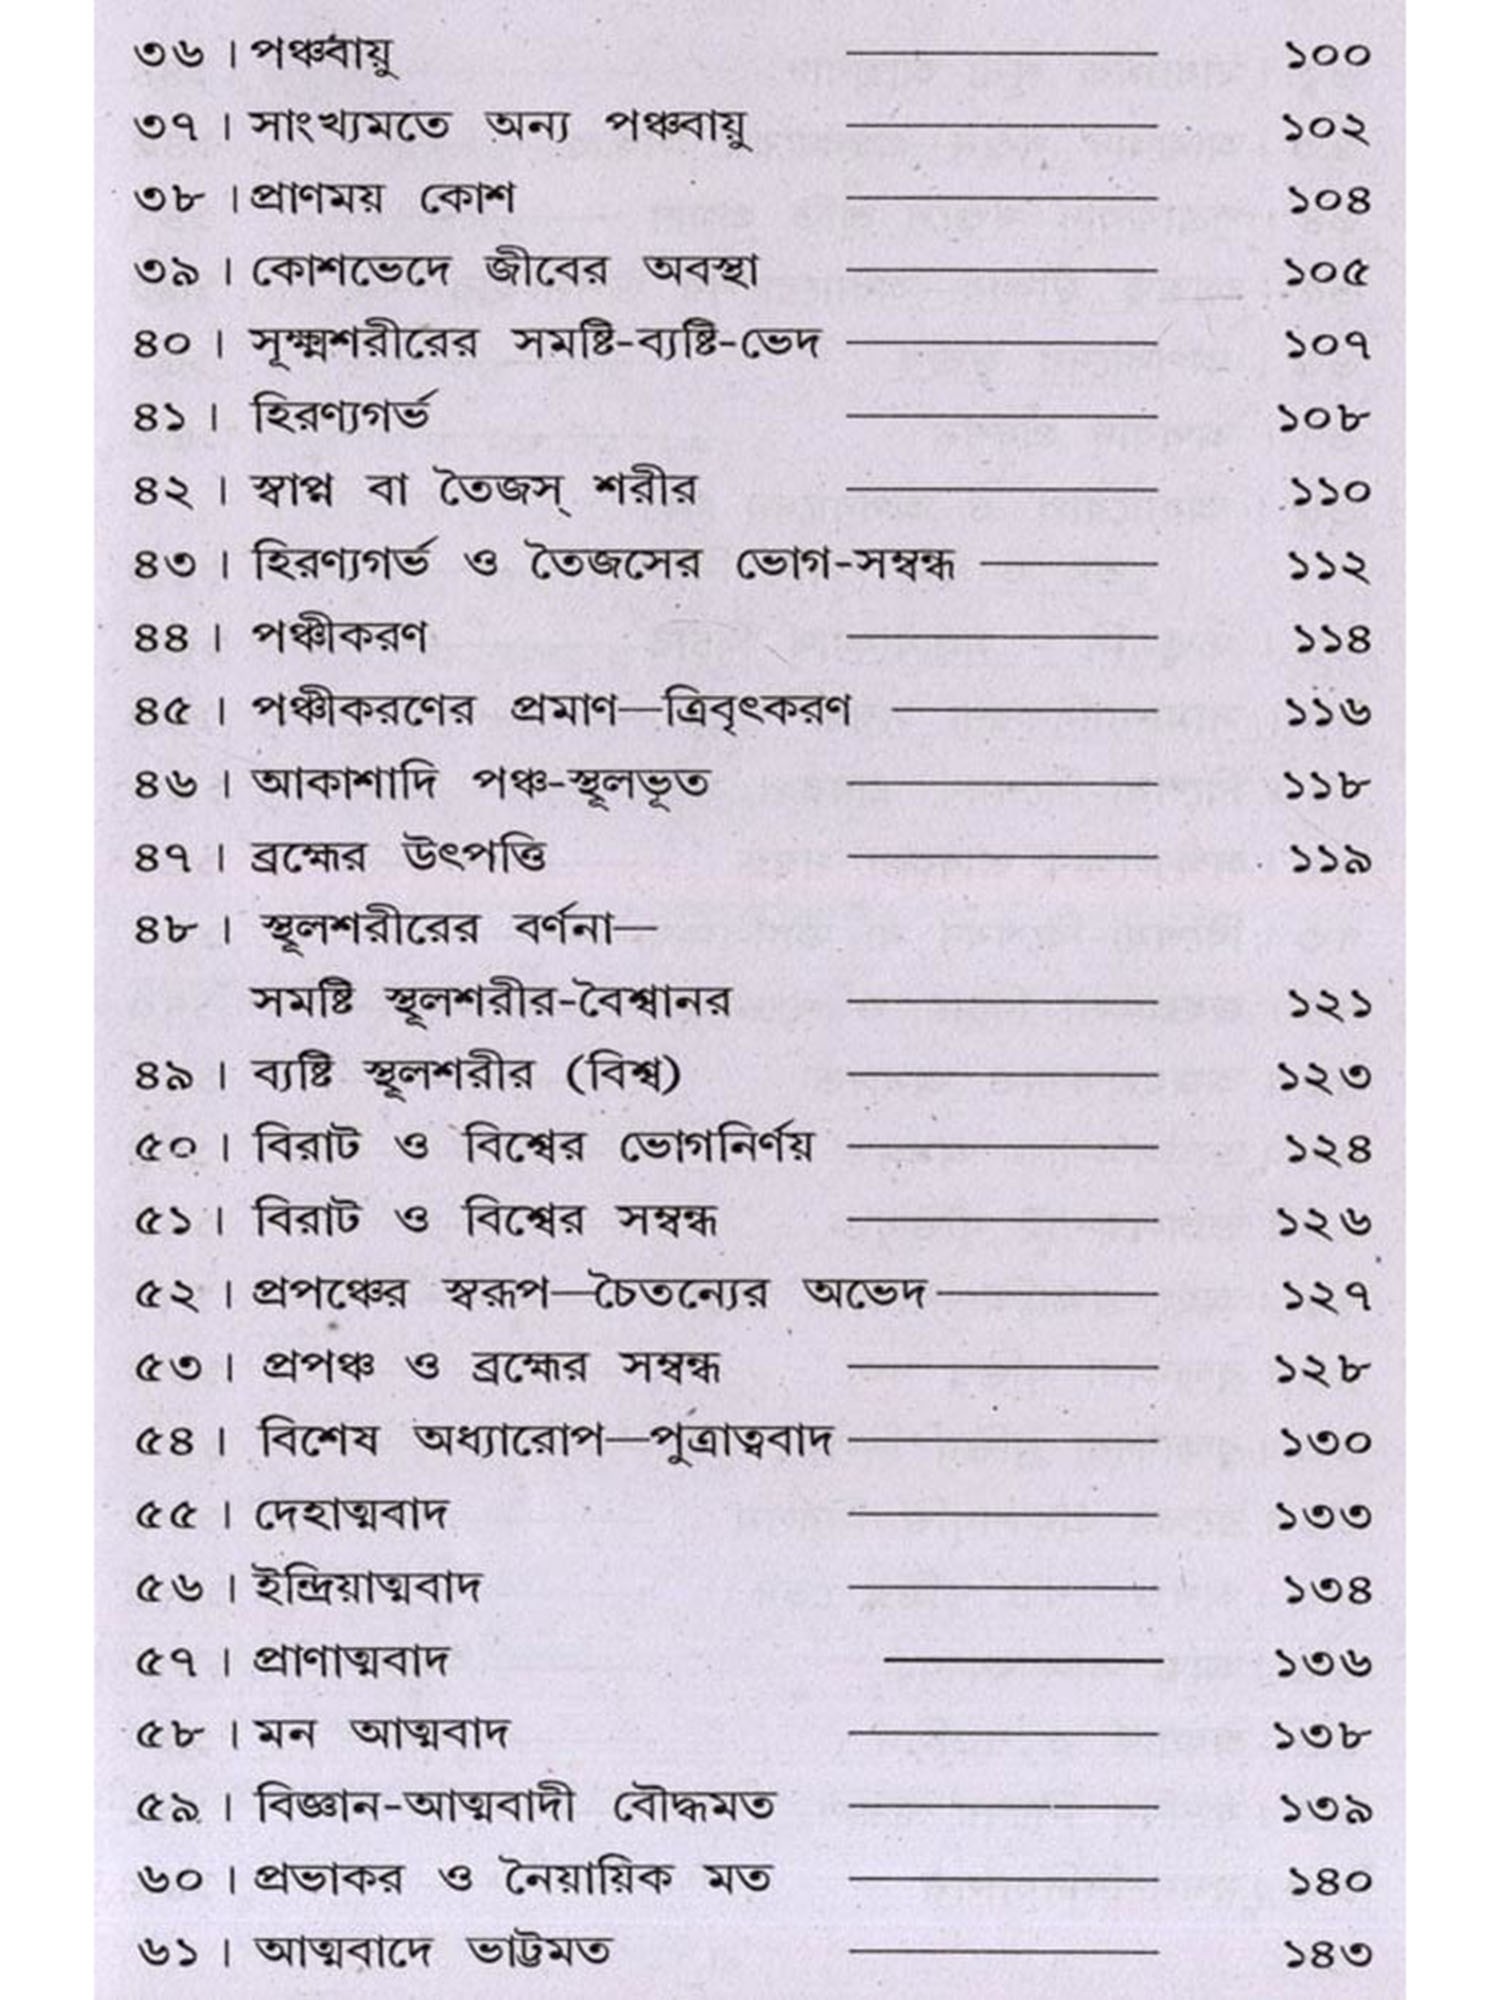 ৩৬ । পঞ্চবায়ু ——— ১০০
৩৭ । সাংখ্যমতে অন্য পঞ্চবায়ু ——— ১০২
৩৮ । প্রাণময় কোশ ——— ১০৪
৩৯ । কোশভেদে জীবের অবস্থা ——— ১০৫
৪০ । সূক্ষ্মশরীরের সমষ্টি-ব্যষ্টি-ভেদ ——— ১০৭
৪১ । হিরণ্যগর্ভ ——— ১০৮
৪২ । স্বাপ্ন বা তৈজস্ শরীর ——— ১১০
৪৩ । হিরণ্যগর্ভ ও তৈজসের ভোগ-সম্বন্ধ ——— ১১২
৪৪ । পঞ্চীকরণ ——— ১১৪
৪৫ । পঞ্চীকরণের প্রমাণ—ত্রিবৃৎকরণ ——— ১১৬
৪৬ । আকাশাদি পঞ্চ-স্থূলভূত ——— ১১৮
৪৭ । ব্রহ্মের উৎপত্তি ——— ১১৯
৪৮ । স্থূলশরীরের বর্ণনা—
সমষ্টি স্থূলশরীর-বৈশ্বানর ——— ১২১
৪৯ । ব্যষ্টি স্থূলশরীর (বিশ্ব) ——— ১২৩
৫০ । বিরাট ও বিশ্বের ভোগনির্ণয় ——— ১২৪
৫১ । বিরাট ও বিশ্বের সম্বন্ধ ——— ১২৬
৫২ । প্রপঞ্চের স্বরূপ—চৈতন্যের অভেদ ——— ১২৭
৫৩ । প্রপঞ্চ ও ব্রহ্মের সম্বন্ধ ——— ১২৮
৫৪ । বিশেষ অধ্যারোপ—পুত্রাত্ববাদ ——— ১৩০
৫৫ । দেহাত্মবাদ ——— ১৩৩
৫৬ । ইন্দ্রিয়াত্মবাদ ——— ১৩৪
৫৭ । প্রাণাত্মবাদ ——— ১৩৬
৫৮ । মন আত্মবাদ ——— ১৩৮
৫৯ । বিজ্ঞান-আত্মবাদী বৌদ্ধমত ——— ১৩৯
৬০ । প্রভাকর ও নৈয়ায়িক মত ——— ১৪০
৬১ । আত্মবাদে ভাট্টমত ——— ১৪৩